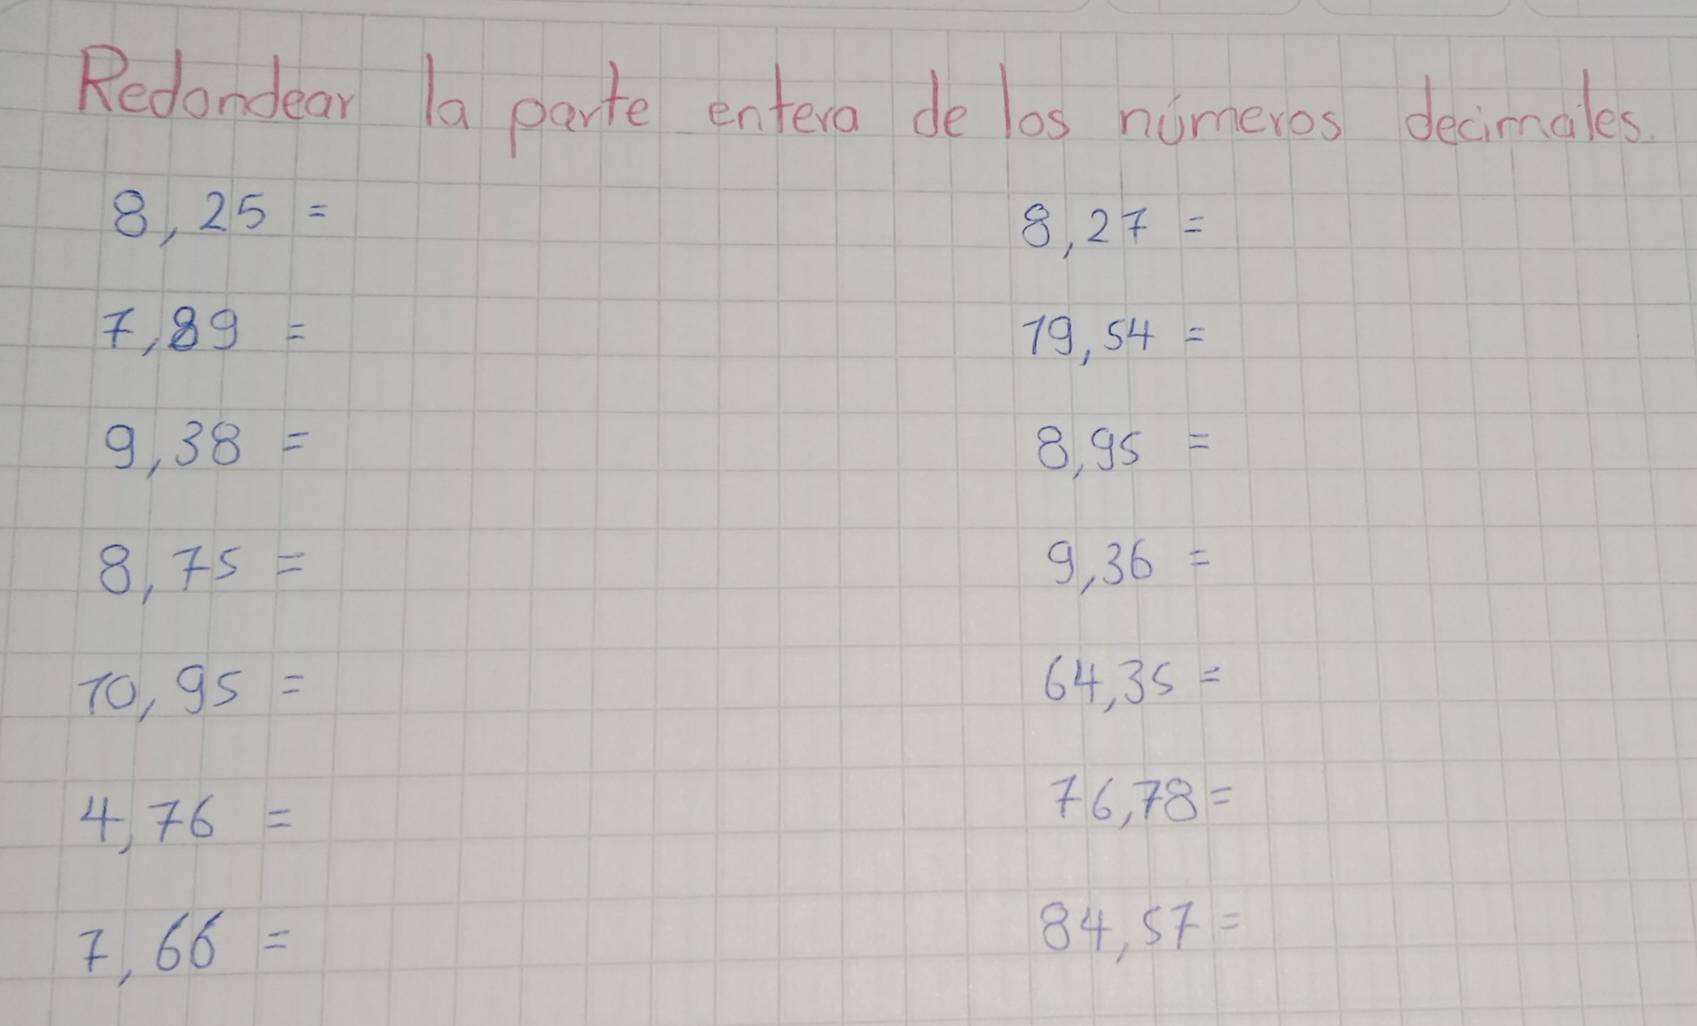 Redondear la parte entera de los números decimales.
8,25 =
8,27 =
7,89 =
19,54 =
9,38 =
8,95 =
8,75 =
9,36 =
10,95 =
64,35 =
4,76 =
76,78 =
7,66 =
84,57 =